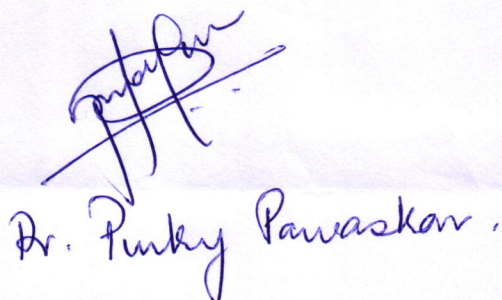 Dr. Pinky Pawaskar.